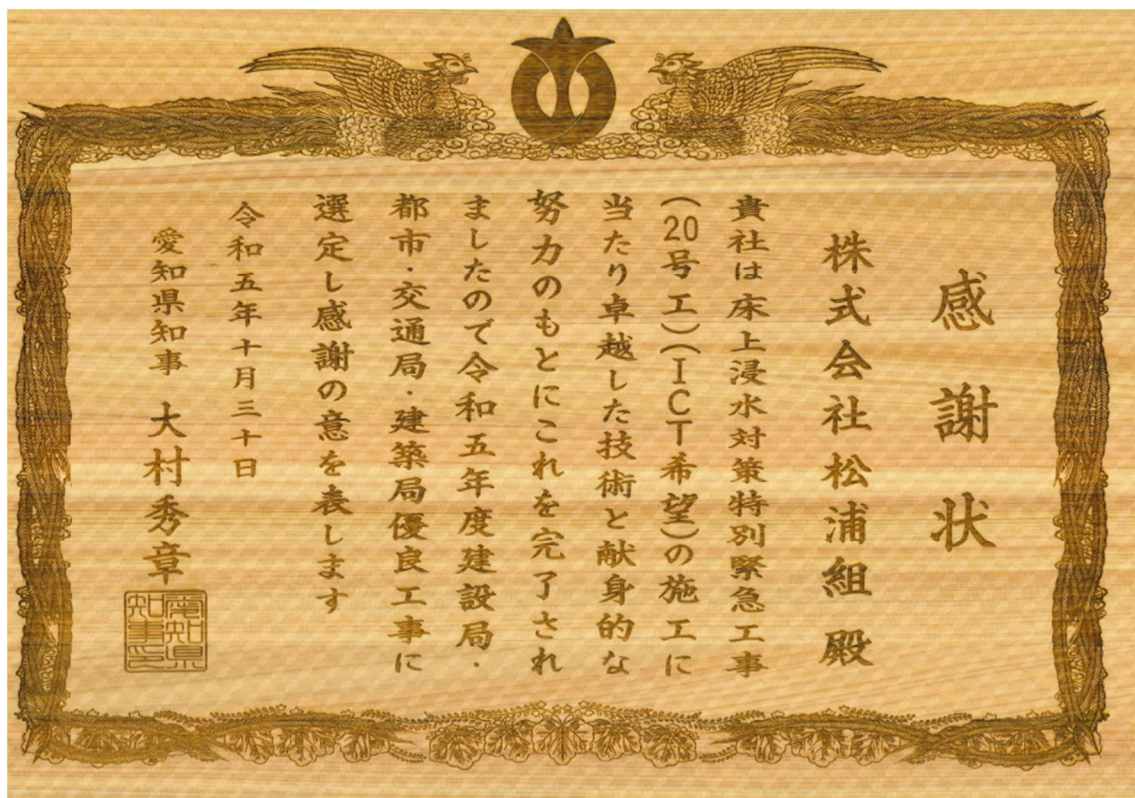 感謝状
株式会社松浦組 殿
貴社は床上浸水対策特別緊急工事
(20号工)(ICT希望)の施工に
当たり卓越した技術と献身的な
努力のもとにこれを完了され
ましたので令和五年度建設局・
都市・交通局・建築局優良工事に
選定し感謝の意を表します
令和五年十月三十日
愛知県知事 大村秀章
愛知県
知事印